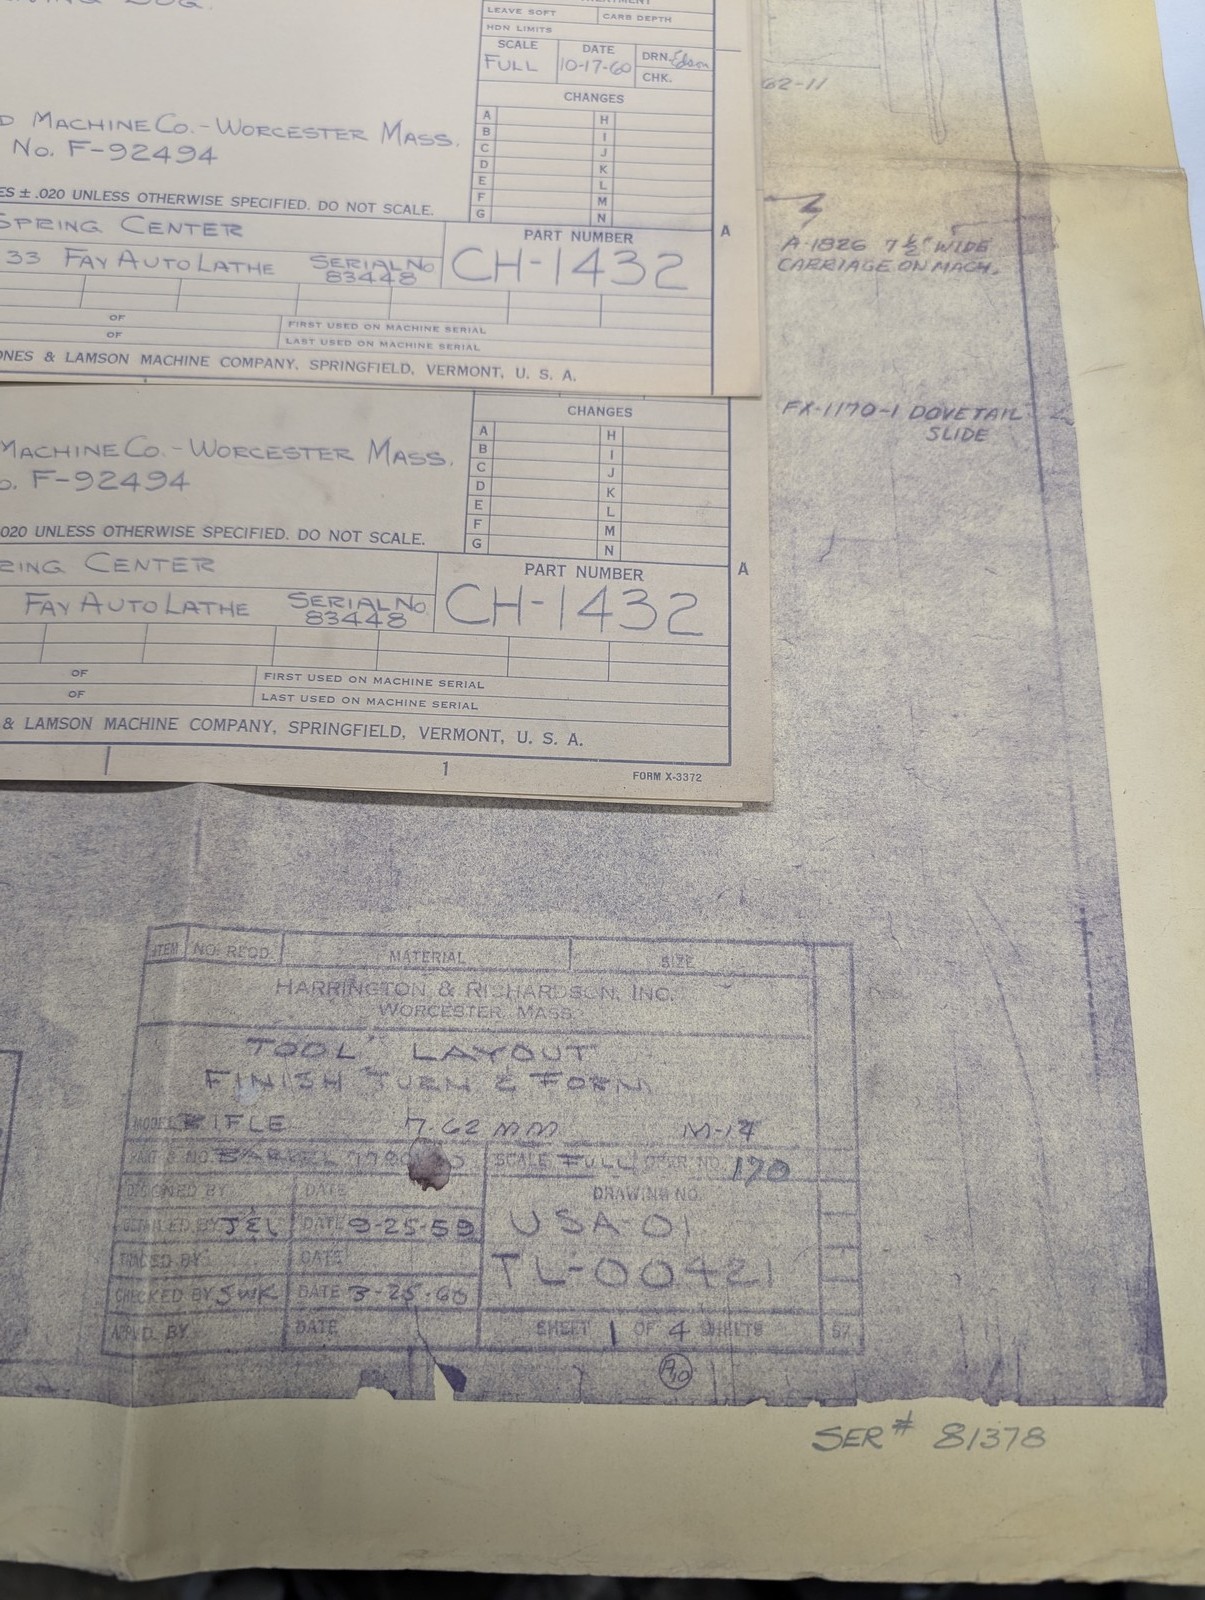 LEAVE SOFT
CARB DEPTH
HDN LIMITS
SCALE
FULL
DATE
10-17-60
DRN. Edson
CHK.
CHANGES
A H
B I
C J
D K
E L
F M
G N
MACHINE CO. - WORCESTER MASS.
No. F-92494
± .020 UNLESS OTHERWISE SPECIFIED. DO NOT SCALE.
SPRING CENTER
33 FAY AUTO LATHE
SERIAL No
83448
PART NUMBER
CH-1432
A
OF
OF
FIRST USED ON MACHINE SERIAL
LAST USED ON MACHINE SERIAL
& LAMSON MACHINE COMPANY, SPRINGFIELD, VERMONT, U. S. A.
62-11
A-1826 7 1/2" WIDE
CARRIAGE ON MACH.
FX-1170-1 DOVETAIL
SLIDE
CHANGES
A H
B I
C J
D K
E L
F M
G N
MACHINE CO. - WORCESTER MASS.
F-92494
020 UNLESS OTHERWISE SPECIFIED. DO NOT SCALE.
CENTER
FAY AUTO LATHE
SERIAL No.
83448
PART NUMBER
CH-1432
A
OF
OF
FIRST USED ON MACHINE SERIAL
LAST USED ON MACHINE SERIAL
& LAMSON MACHINE COMPANY, SPRINGFIELD, VERMONT, U. S. A.
1
FORM X-3372
ITEM NO. REQD. MATERIAL SIZE
HARRINGTON & RICHARDSON, INC.
WORCESTER, MASS.
TOOL LAYOUT
FINISH TURN & FORM
MODEL RIFLE 7.62 MM M-14
BARREL
SCALE FULL OPER. NO. 170
DESIGNED BY DATE
DRAWING NO.
USA-01
TL-00421
DETAILED BY JEL DATE 9-25-59
TRACED BY DATE
CHECKED BY SWK DATE 3-25-60
APP'D. BY DATE
SHEET 1 OF 4 SHEETS
SER# 81378